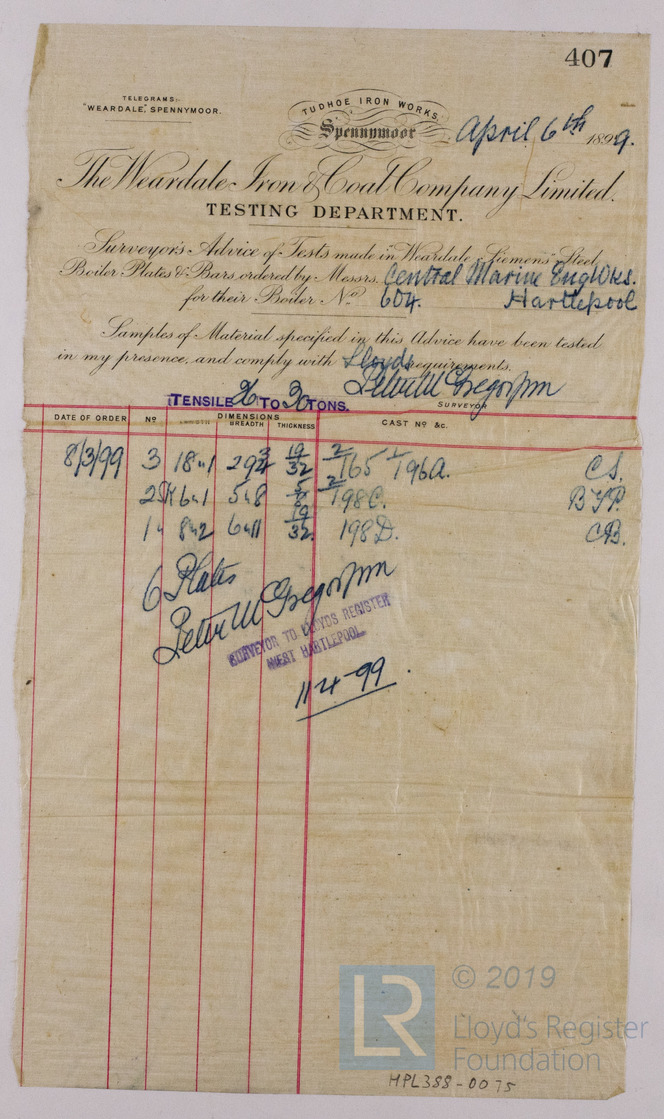 407
TELEGRAMS:-
"WEARDALE", SPENNYMOOR.
TUDHOE IRON WORKS,
Spennymoor
April 6th 1899.
The Weardale Iron & Coal Company Limited.
TESTING DEPARTMENT.
Surveyor's Advice of Tests made in Weardale Siemens Steel
Boiler Plates & Bars, ordered by Messrs. Central Marine EngWks.
for their Boiler No 604. Hartlepool
Samples of Material specified in this Advice have been tested
in my presence, and comply with Lloyds requirements.
SURVEYOR
TENSILE 26 TO 30 TONS.
DATE OF ORDER No LENGTH DIMENSIONS BREADTH THICKNESS CAST No &c.
8/3/99 3 19/32 2/165 1/196A. CS.
5/8 2/198C. BTP.
19/32 198D. CB.
6 Plates
SURVEYOR TO LLOYDS REGISTER
WEST HARTLEPOOL
11-4-99.
LR
© 2019
Lloyd's Register
Foundation
HPL388-0075